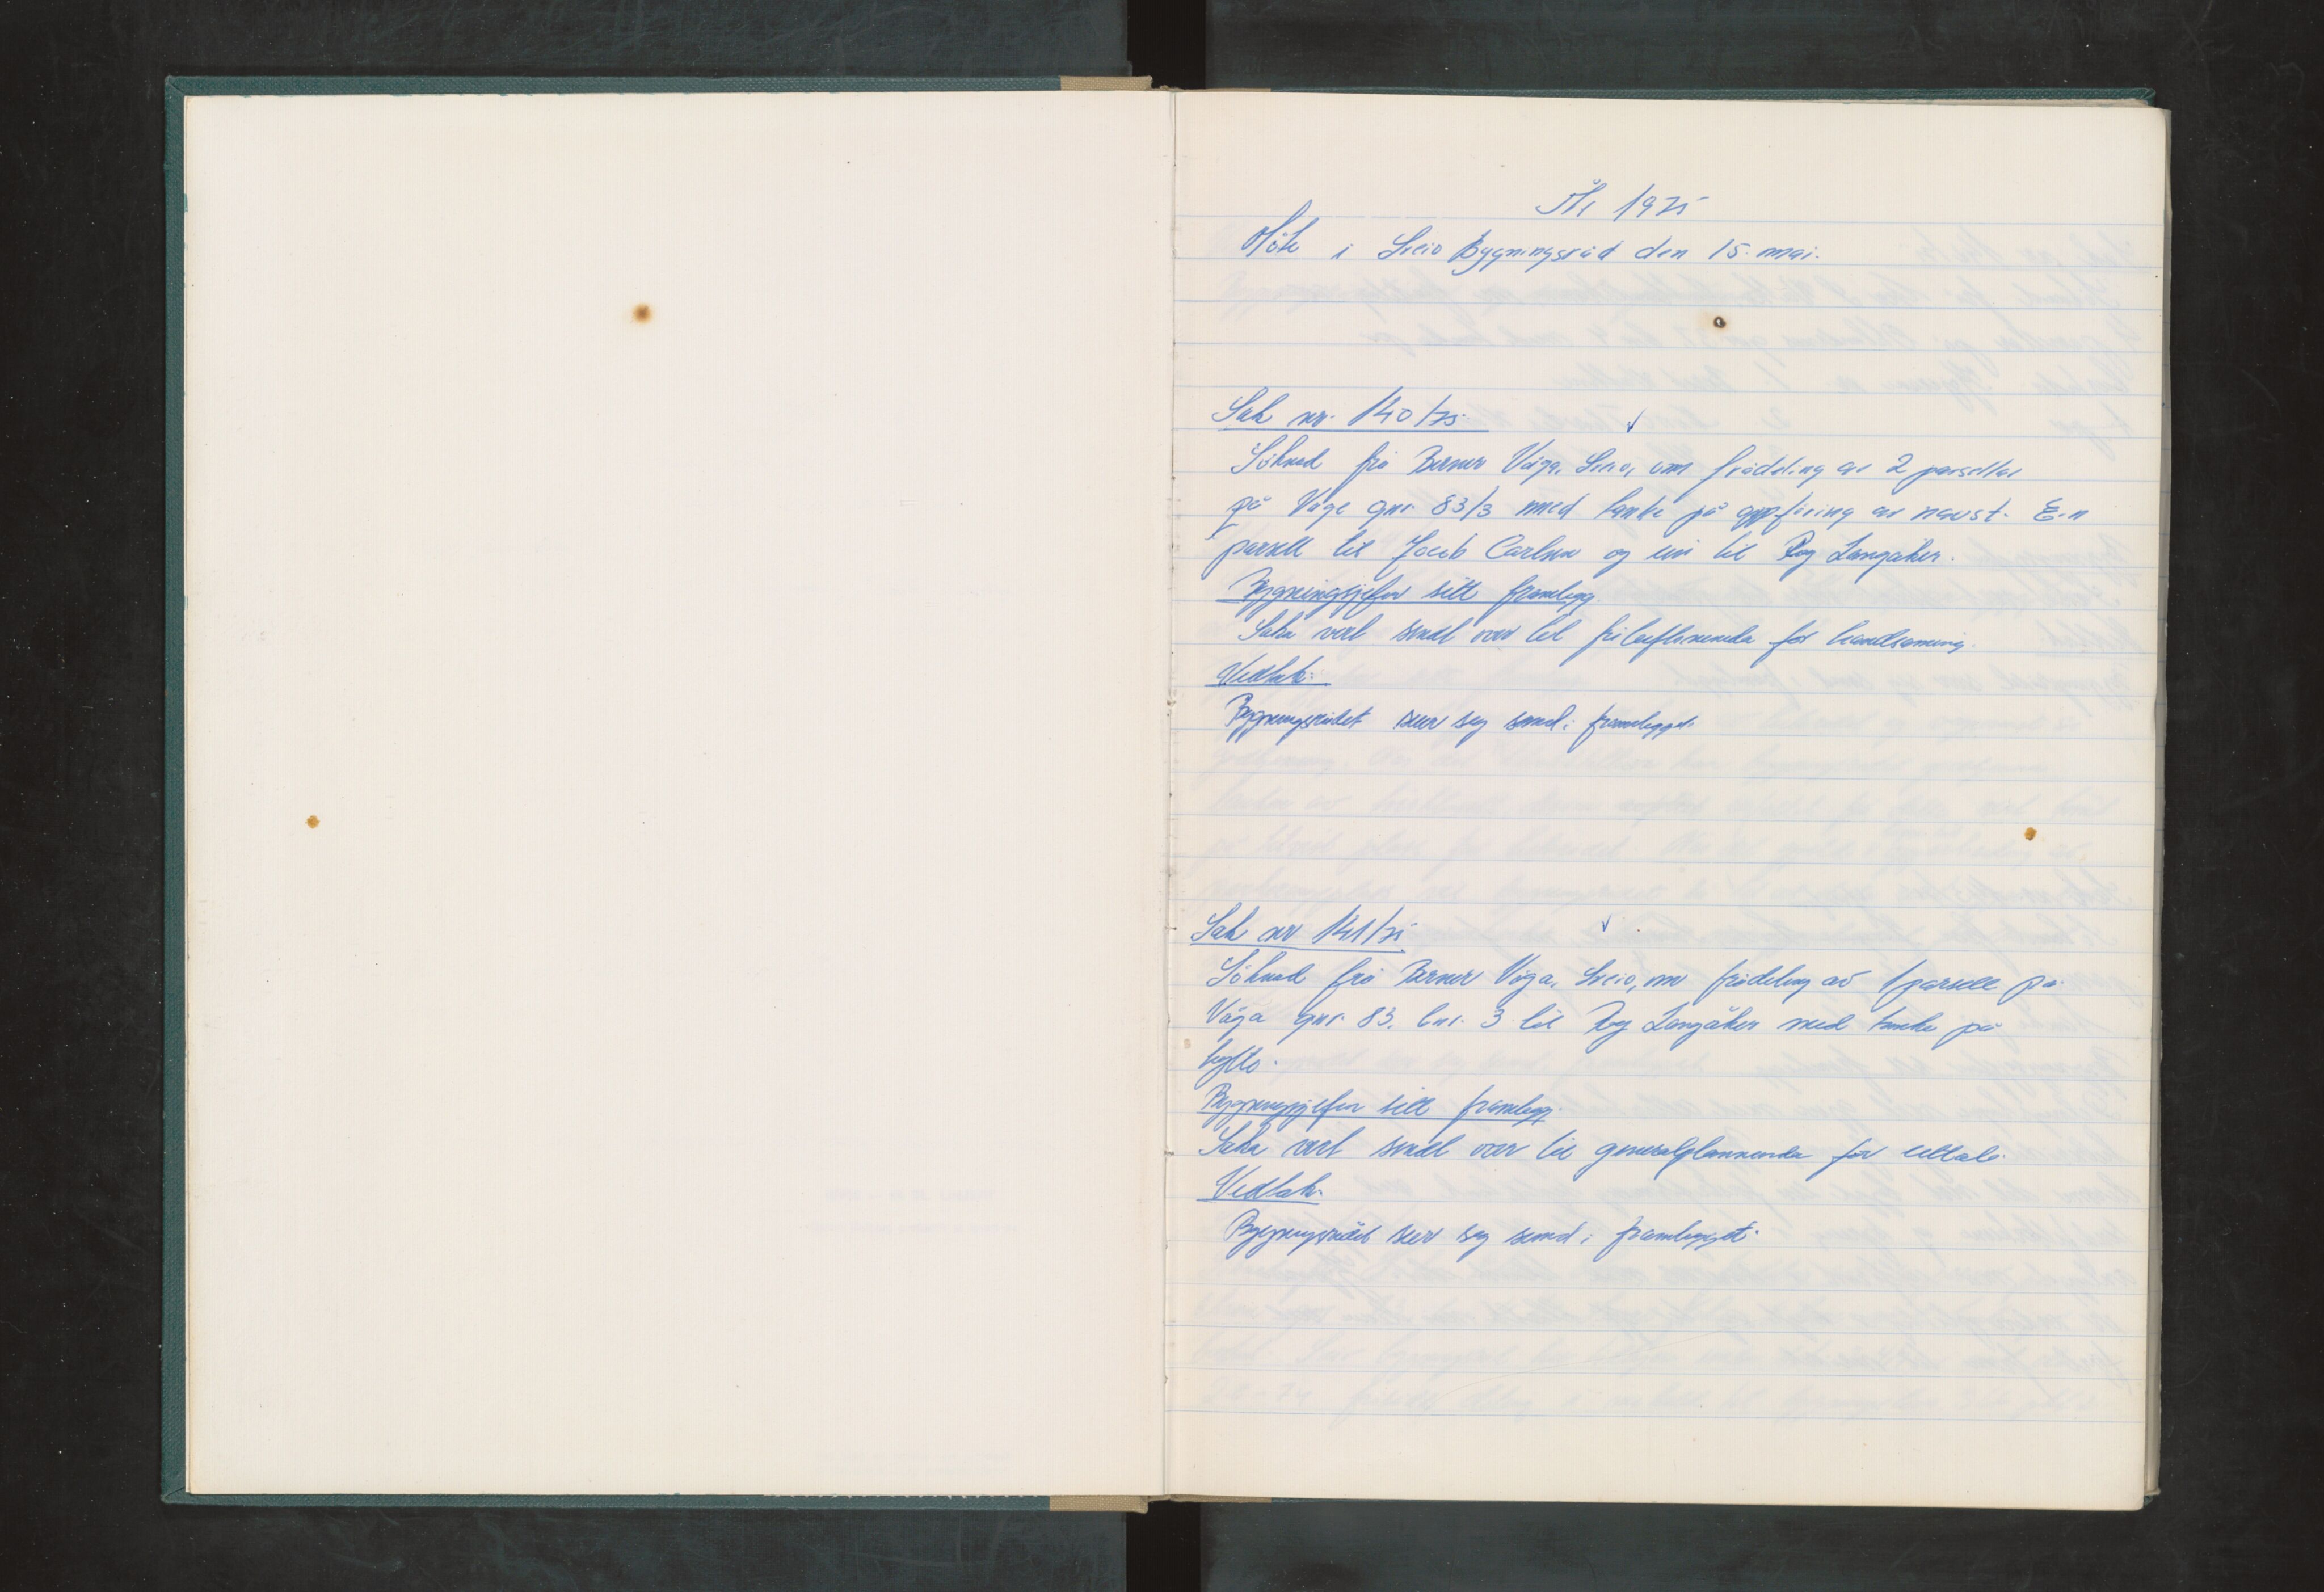 År 1975
Møte i Sveio Bygningsråd den 15. mai.
Sak nr. 140/75.
Søknad frå Berner Våga, Sveio, om frådeling av 2 parsellar
på Våge gnr. 83/3 med tanke på oppføring av naust. Ein
parsell til Jacob Carlsen og ein til Roy Langåker.
Bygningssjefen sitt framlegg
Saka vert sendt over til friluftsnemnda for handsaming.
Vedtak:
Bygningsrådet seier seg samd i framlegget.
Sak nr 141/75
Søknad frå Berner Våga, Sveio, om frådeling av 1 parsell på
Våga gnr. 83, bnr. 3 til Roy Langåker med tanke på
hytte.
Bygningssjefen sitt framlegg.
Saka vert sendt over til generalplannemnda for uttale.
Vedtak.
Bygningsrådet seier seg samd i framlegget.